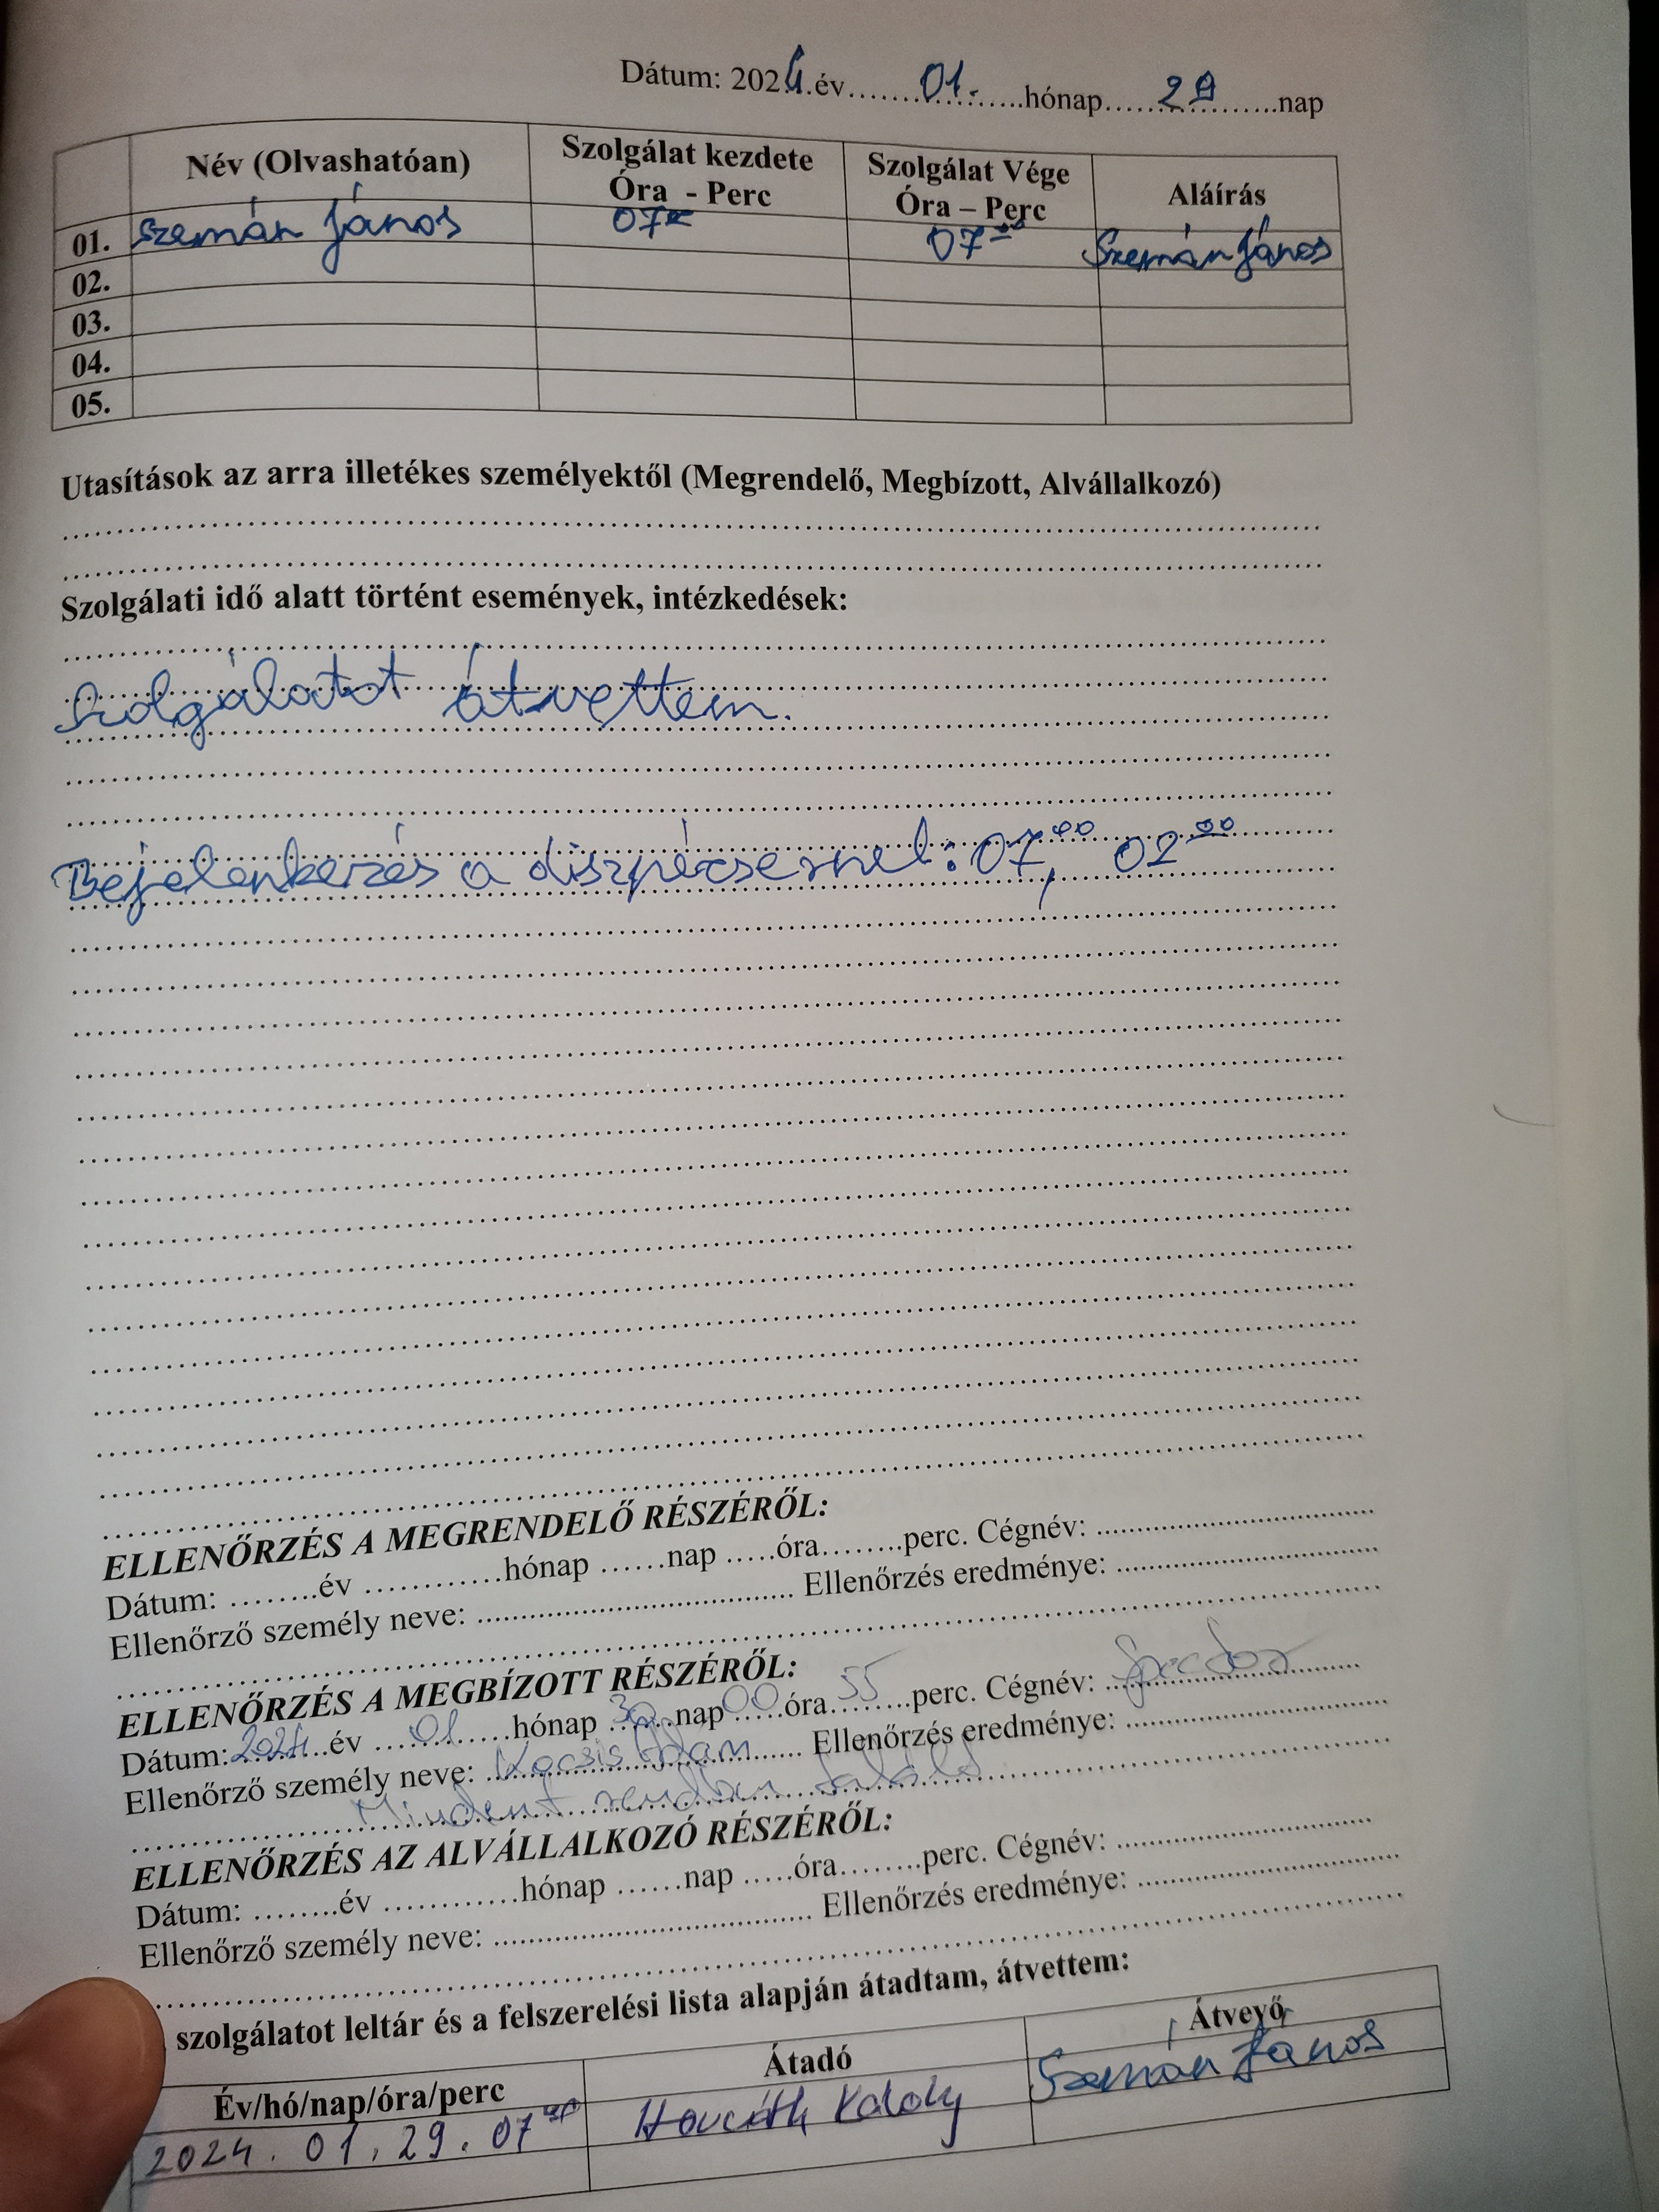 Dátum: 2024.év........01...........hónap......29........nap
Név (Olvashatóan) Szolgálat kezdete Óra - Perc Szolgálat Vége Óra – Perc Aláírás
01. Szemán János 07 00 07 00 Szemán János
02.
03.
04.
05.
Utasítások az arra illetékes személyektől (Megrendelő, Megbízott, Alvállalkozó)
Szolgálati idő alatt történt események, intézkedések:
Szolgálatot átvettem.
Bejelenkezés a diszpécsernel: 07 00, 02 00
ELLENŐRZÉS A MEGRENDELŐ RÉSZÉRŐL:
Dátum: ........év ............hónap ......nap .....óra........perc. Cégnév: ................
Ellenőrző személy neve: ................ Ellenőrzés eredménye: ................
ELLENŐRZÉS A MEGBÍZOTT RÉSZÉRŐL:
Dátum: 2024 év 01 hónap 30 nap 00 óra 55 perc. Cégnév:
Ellenőrző személy neve: Kocsis Ádám Ellenőrzés eredménye: ................
Mindent rendben talált
ELLENŐRZÉS AZ ALVÁLLALKOZÓ RÉSZÉRŐL:
Dátum: ........év ............hónap ......nap .....óra........perc. Cégnév: ................
Ellenőrző személy neve: ................ Ellenőrzés eredménye: ................
szolgálatot leltár és a felszerelési lista alapján átadtam, átvettem:
Év/hó/nap/óra/perc Átadó Átvevő
2024. 01. 29. 07 00 Horváth Károly Szemán János